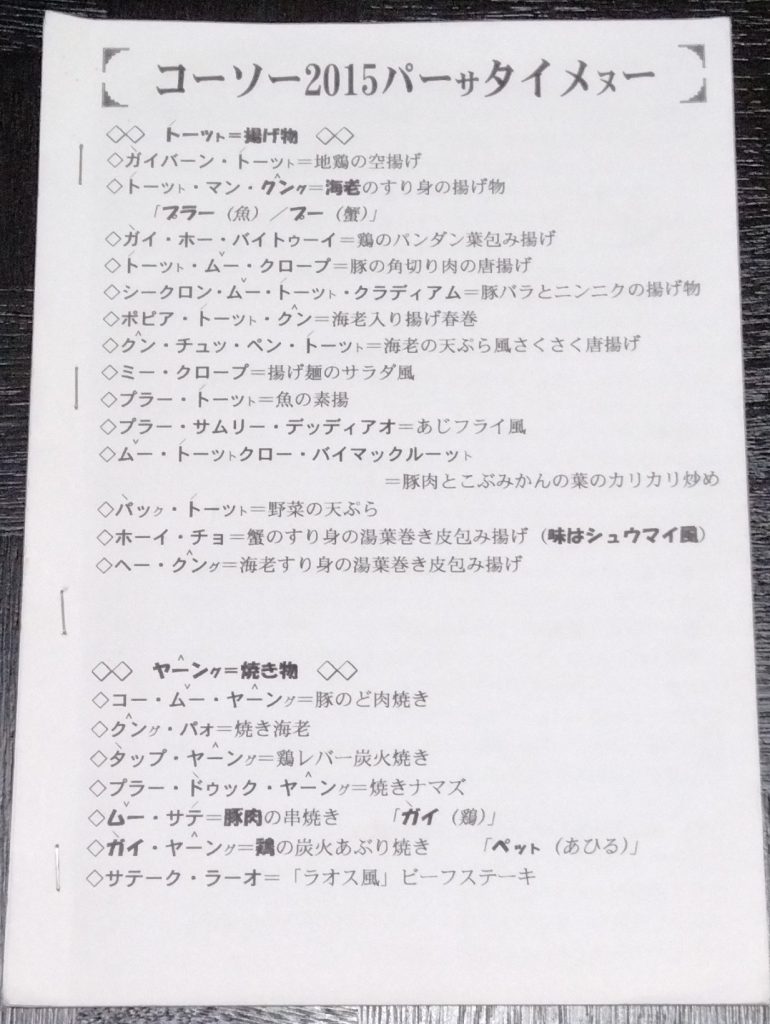 コーソー2015パーサタイメヌー
◇◇ トーット＝揚げ物 ◇◇
◇ガイバーン・トーット＝地鶏の空揚げ
◇トーット・マン・クング＝海老のすり身の揚げ物
「プラー（魚）／プー（蟹）」
◇ガイ・ホー・バイトゥーイ＝鶏のパンダン葉包み揚げ
◇トーット・ムー・クロープ＝豚の角切り肉の唐揚げ
◇シークロン・ムー・トーット・クラディアム＝豚バラとニンニクの揚げ物
◇ポピア・トーット・クン＝海老入り揚げ春巻
◇クン・チュッ・ペン・トーット＝海老の天ぷら風さくさく唐揚げ
◇ミー・クロープ＝揚げ麺のサラダ風
◇プラー・トーット＝魚の素揚
◇プラー・サムリー・デッディアオ＝あじフライ風
◇ムー・トーットクロー・バイマックルーット
＝豚肉とこぶみかんの葉のカリカリ炒め
◇パック・トーット＝野菜の天ぷら
◇ホーイ・チョ＝蟹のすり身の湯葉巻き皮包み揚げ（味はシュウマイ風）
◇ヘー・クング＝海老すり身の湯葉巻き皮包み揚げ
◇◇ ヤーング＝焼き物 ◇◇
◇コー・ムー・ヤーング＝豚のど肉焼き
◇クング・パォ＝焼き海老
◇タップ・ヤーング＝鶏レバー炭火焼き
◇プラー・ドゥック・ヤーング＝焼きナマズ
◇ムー・サテ＝豚肉の串焼き 「ガイ（鶏）」
◇ガイ・ヤーング＝鶏の炭火あぶり焼き 「ペット（あひる）」
◇サテーク・ラーオ＝「ラオス風」ビーフステーキ